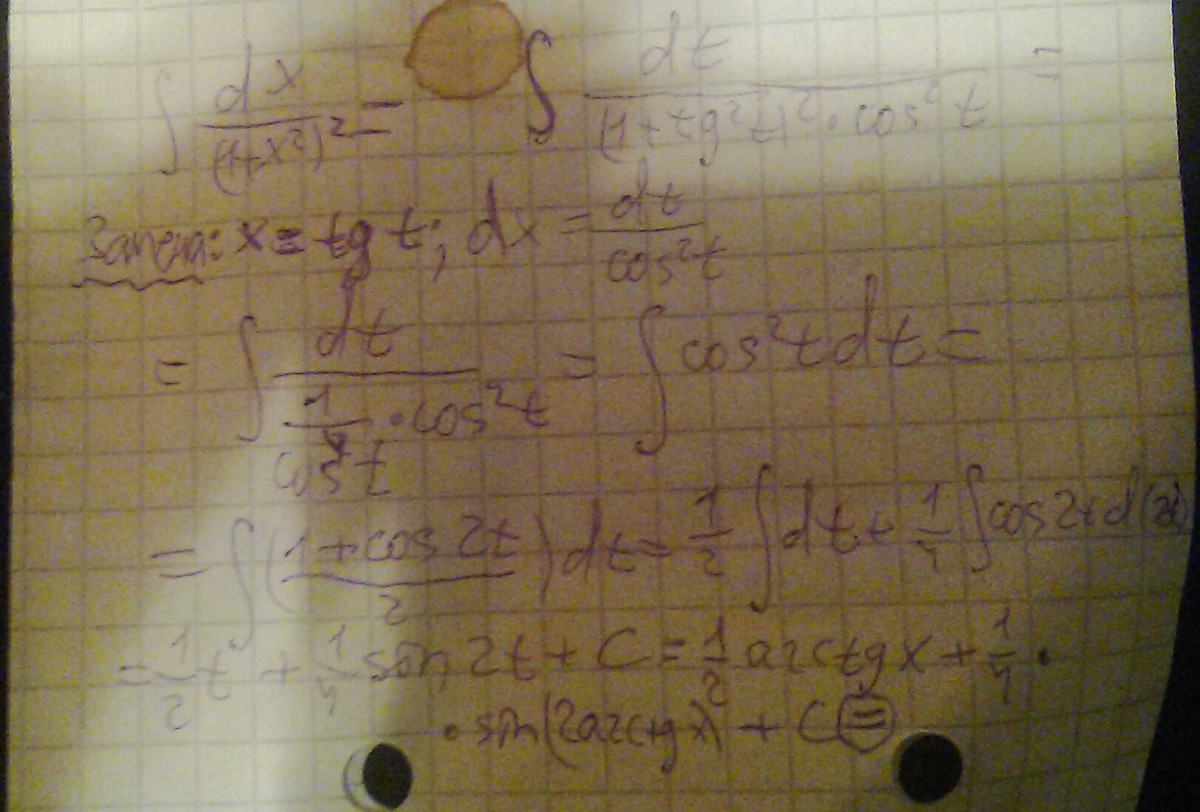 ∫ dx/(1+x²)² = ∫ dt/((1+tg²t)²·cos²t) =
Замена: x = tg t; dx = dt/cos²t
= ∫ dt/(1/cos⁴t · cos²t) = ∫ cos²t dt =
= ∫ ((1+cos 2t)/2) dt = 1/2 ∫ dt + 1/4 ∫ cos 2t d(2t)
= 1/2 t + 1/4 sin 2t + C = 1/2 arctg x + 1/4 ·
· sin(2arctg x) + C =